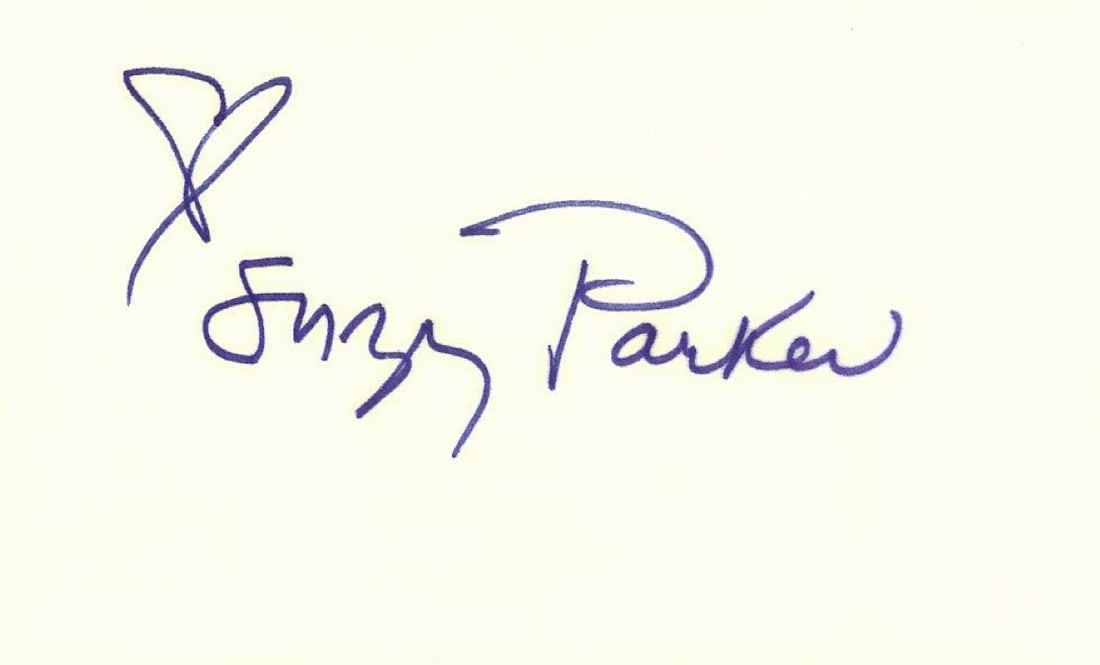 Suzy Parker